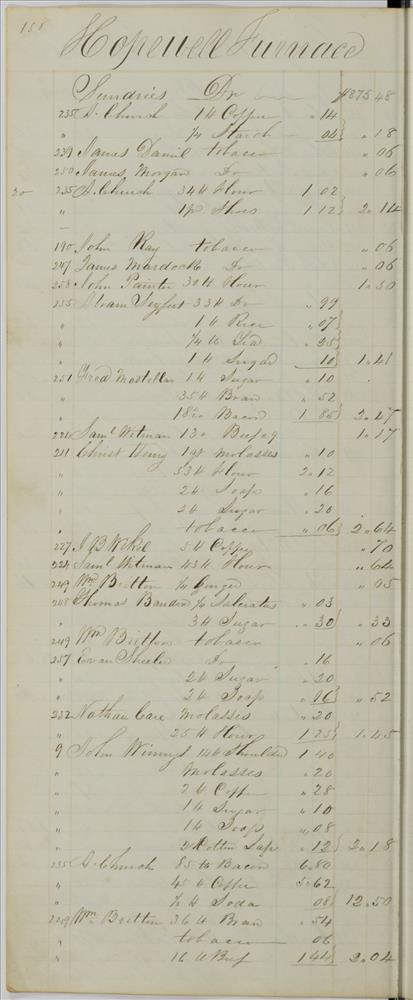 158
Hopewell Furnace
Sundries Dr $875.48
235 S. Church 1 # Coffee " 14
" ¼ Starch 04 " 18
239 James Daniel tobacco " 06
250 James Morgan Do " 06
20 235 S. Church 34 # Flour 1 02
" 1 pr Shoes 1 12 2.14
190 John Ray tobacco " 06
247 James Murdock Do " 06
258 John Painter 30 # Flour 1.50
255 Abram Seyfert 33 # Do " 99
" 1 # Rice " 07
" ¼ lb Tea " 25
" 1 # Sugar 10 1.41
251 Fred Mostellar 1 # Sugar " 10
" 35 # Bran " 52
" Bacon 1 85 2.47
221 Saml Witman 13 # Beef 9 1.17
211 Christ Heny 1 qt Molasses " 10
" 53 # Flour 2.12
" 2 # Soap " 16
" 2 # Sugar " 20
" tobacco " 06 2.64
227 J B Wikel 5 # Coffee " 70
224 Saml Witman 43 # Flour " 64
249 Wm Britton ¼ Ginger " 05
248 Thomas ½ Saleratus " 03
" 3 # Sugar " 30 " 33
249 Wm Britton tobacco " 06
257 Evan Sheeler Do " 16
" 2 # Sugar " 20
" 2 # Soap " 16 " 52
232 Nathan Care Molasses " 20
" 25 # Flour 1 25 1.45
9 John 14 # Shoulder 1 40
" Molasses " 20
" 2 # Coffee " 28
" 1 # Sugar " 10
" 1 # Soap " 08
" 2 Cotton Laps " 12 2.18
235 S. Church 85 lb Bacon 6.80
" # Coffee 5.62
" ½ # Soda 08 12.50
249 Wm Britton 36 # Bran " 54
" tobacco 06
" 16 # Beef 1 44 2.04